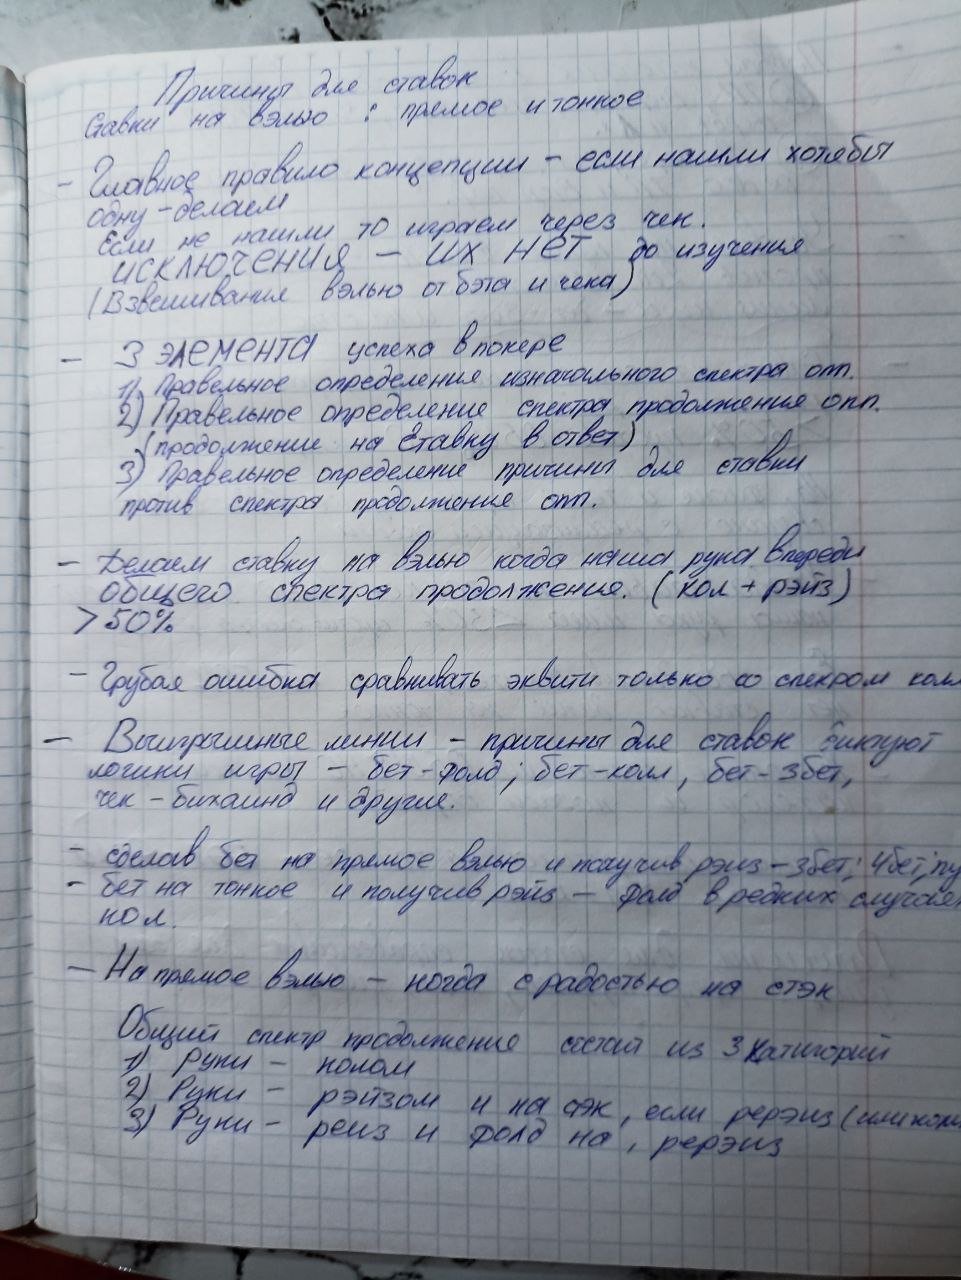 Причины для ставок
Ставки на вэлью : прямое и тонкое
- Главное правило концепции - если нашли хотябы
одну - делаем
Если не нашли то играем через чек.
ИСКЛЮЧЕНИЯ - ИХ НЕТ до изучения
(Взвешивания вэлью от бэта и чека)
- 3 ЭЛЕМЕНТА успеха в покере
1) Правельное определения изначального спектра опп.
2) Правельное определение спектра продолжения опп.
(продолжение на ставку в ответ)
3) Правельное определение причины для ставки
против спектра продолжение опп.
- Делаем ставку на вэлью когда наша рука впереди
общего спектра продолжения. (кол + рэйз)
> 50%
- Грубая ошибка сравнивать эквити только со спекром колл
- Выигрышные линии - причины для ставок диктуют
логики игры - бет-фолд; бет-колл, бет-3бет,
чек-бихаинд и другие.
- сделав бет на прямое вэлью и получив рэиз - 3бет; 4бет; пу
- бет на тонкое и получив рэйз - фолд в редких случаях
кол.
- На прямое вэлью - когда с радостью на стэк
Общий спектр продолжение состоит из 3 категорий
1) Руки - колом
2) Руки - рэйзом и на стэк, если ререиз (или кол
3) Руки - реиз и фолд на, рерэиз